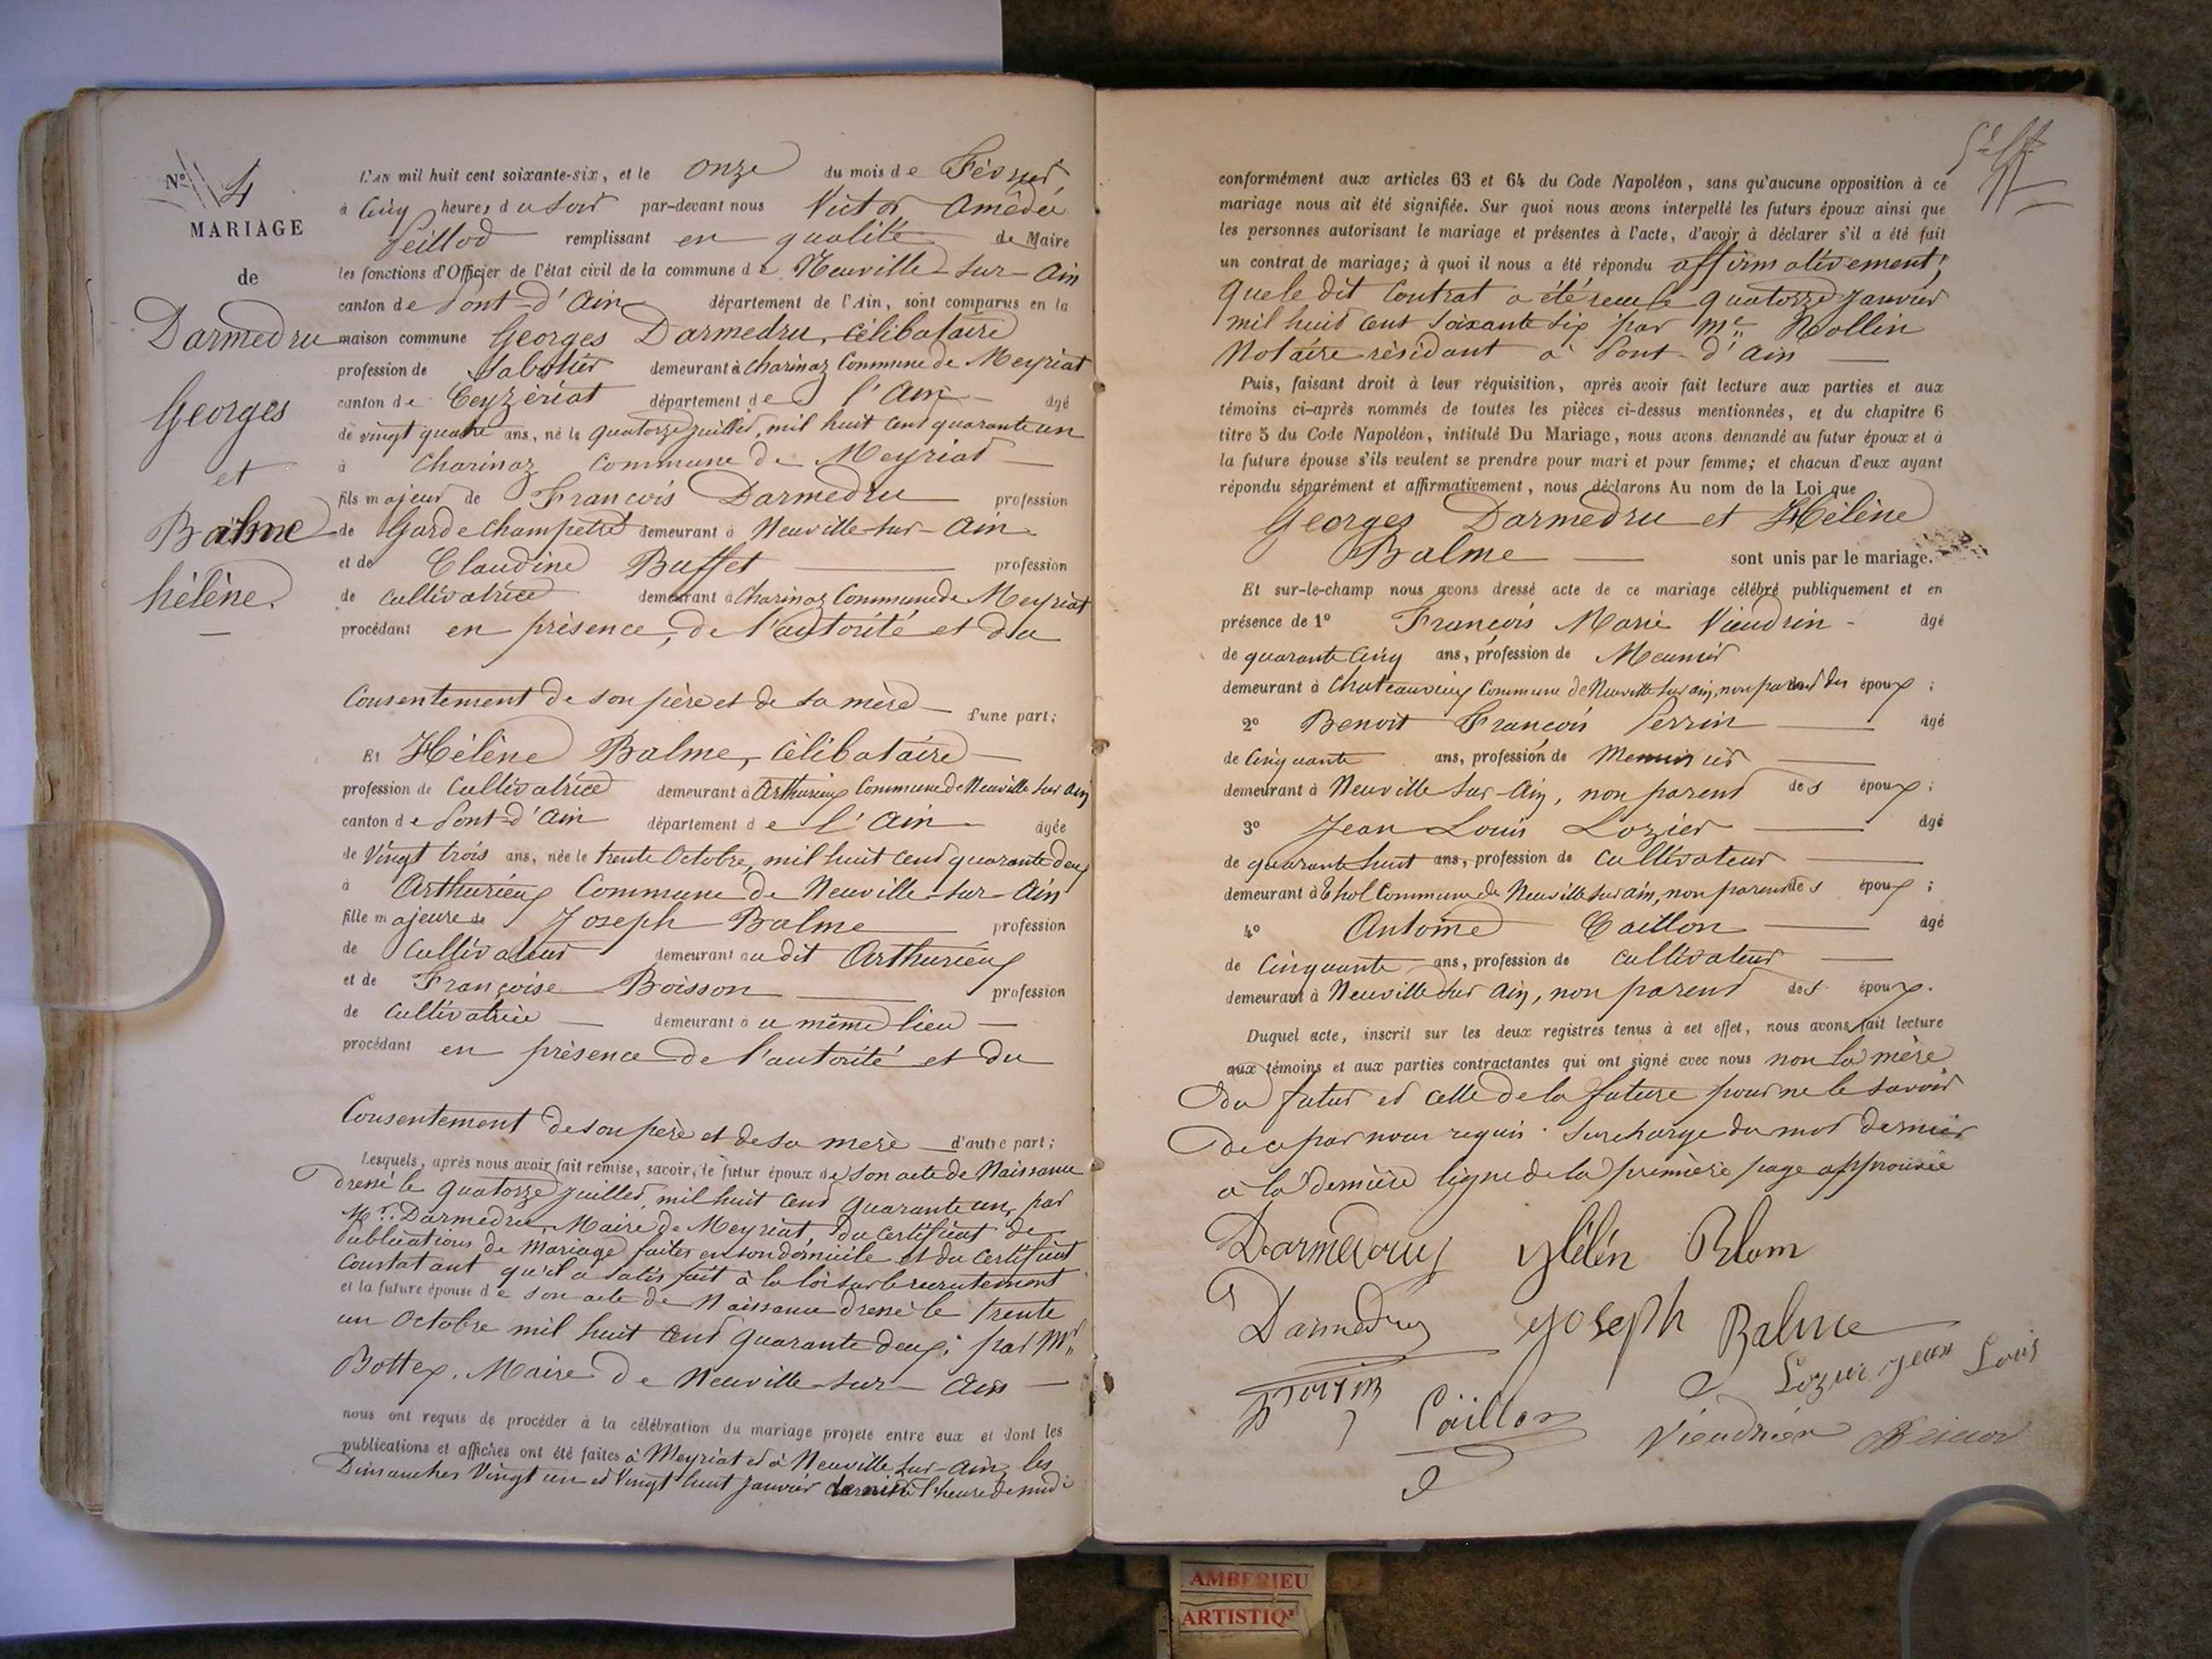 No 4
MARIAGE
de
Darmedru
Georges
et
Balme
hélène.
L'AN mil huit cent soixante-six, et le onze du mois de Février
à Cinq heures du Soir par-devant nous Victor Amédée
Peillod remplissant en qualité de Maire
les fonctions d'Officier de l'état civil de la commune de Neuville-sur-Ain
canton de Pont-d'Ain département de l'Ain, sont comparus en la
maison commune Georges Darmedru, Célibataire
profession de Sabotier demeurant à Charinaz Commune de Meyriat
canton de Ceyzériat département de l'Ain âgé
de vingt quatre ans, né le quatorze juillet, mil huit cent quarante un
à Charinaz Commune de Meyriat
fils majeur de François Darmedru profession
de Garde Champêtre demeurant à Neuville-sur-Ain
et de Claudine Buffet profession
de cultivatrice demeurant à Charinaz Commune de Meyriat
procédant en présence, de l'autorité et du
Consentement de son père et de sa mère d'une part;
Et Hélène Balme, Célibataire
profession de Cultivatrice demeurant à Arthurieux Commune de Neuville sur Ain
canton de Pont-d'Ain département de l'Ain âgée
de Vingt trois ans, née le trente Octobre, mil huit cent quarante deux
à Arthurieux Commune de Neuville-sur-Ain
fille majeure de Joseph Balme profession
de Cultivateur demeurant au dit Arthurieux
et de Françoise Boisson profession
de Cultivatrice demeurant au même lieu
procédant en présence de l'autorité et du
Consentement de son père et de sa mère d'autre part;
Lesquels, après nous avoir fait remise, savoir, le futur époux de son acte de Naissance
dressé le quatorze juillet, mil huit cent quarante un, par
Mr. Darmedru, Maire de Meyriat, du certificat de
Publications de Mariage faites en son domicile et du certificat
Constatant qu'il a satisfait à la loi sur le recrutement
et la future épouse de son acte de Naissance dressé le trente
un Octobre mil huit cent quarante deux; par Mr
Bottex, Maire de Neuville-sur-Ain
nous ont requis de procéder à la célébration du mariage projeté entre eux et dont les
publications et affiches ont été faites à Meyriat et à Neuville sur-Ain, les
Dimanches Vingt un et Vingt huit Janvier dernier à l'heure de midi
conformément aux articles 63 et 64 du Code Napoléon, sans qu'aucune opposition à ce
mariage nous ait été signifiée. Sur quoi nous avons interpellé les futurs époux ainsi que
les personnes autorisant le mariage et présentes à l'acte, d'avoir à déclarer s'il a été fait
un contrat de mariage; à quoi il nous a été répondu affirmativement;
que le dit Contrat a été reçu le quatorze Janvier
mil huit cent Soixante six par Me Rollin
Notaire résidant à Pont-d'Ain
Puis, faisant droit à leur réquisition, après avoir fait lecture aux parties et aux
témoins ci-après nommés de toutes les pièces ci-dessus mentionnées, et du chapitre 6
titre 5 du Code Napoléon, intitulé Du Mariage, nous avons demandé au futur époux et à
la future épouse s'ils veulent se prendre pour mari et pour femme; et chacun d'eux ayant
répondu séparément et affirmativement, nous déclarons Au nom de la Loi que
Georges Darmedru et Hélène
Balme sont unis par le mariage.
Et sur-le-champ nous avons dressé acte de ce mariage célébré publiquement et en
présence de 1º François Marie Vieudrin âgé
de quarante Cinq ans, profession de Meunier
demeurant à Chateauvieux Commune de Neuville sur ain, non parent des époux;
2º Benoit François Perrin âgé
de Cinquante ans, profession de Menuisier
demeurant à Neuville sur-Ain, non parent des époux;
3º Jean Louis Lozier âgé
de quarante huit ans, profession de Cultivateur
demeurant à Thol Commune de Neuville sur ain, non parent des époux;
4º Antoine Caillon âgé
de Cinquante ans, profession de Cultivateur
demeurant à Neuville sur Ain, non parent des époux.
Duquel acte, inscrit sur les deux registres tenus à cet effet, nous avons fait lecture
aux témoins et aux parties contractantes qui ont signé avec nous non la mère
du futur et celle de la future pour ne le savoir
de ce par nous requis. Surcharge du mot dernier
à la dernière ligne de la première page approuvée
Darmedru Hélén Blam
Darmedru Joseph Balme
Lozier Jean Louis
Perrin Caillon Vieudrin
AMBERIEU
ARTISTIQ